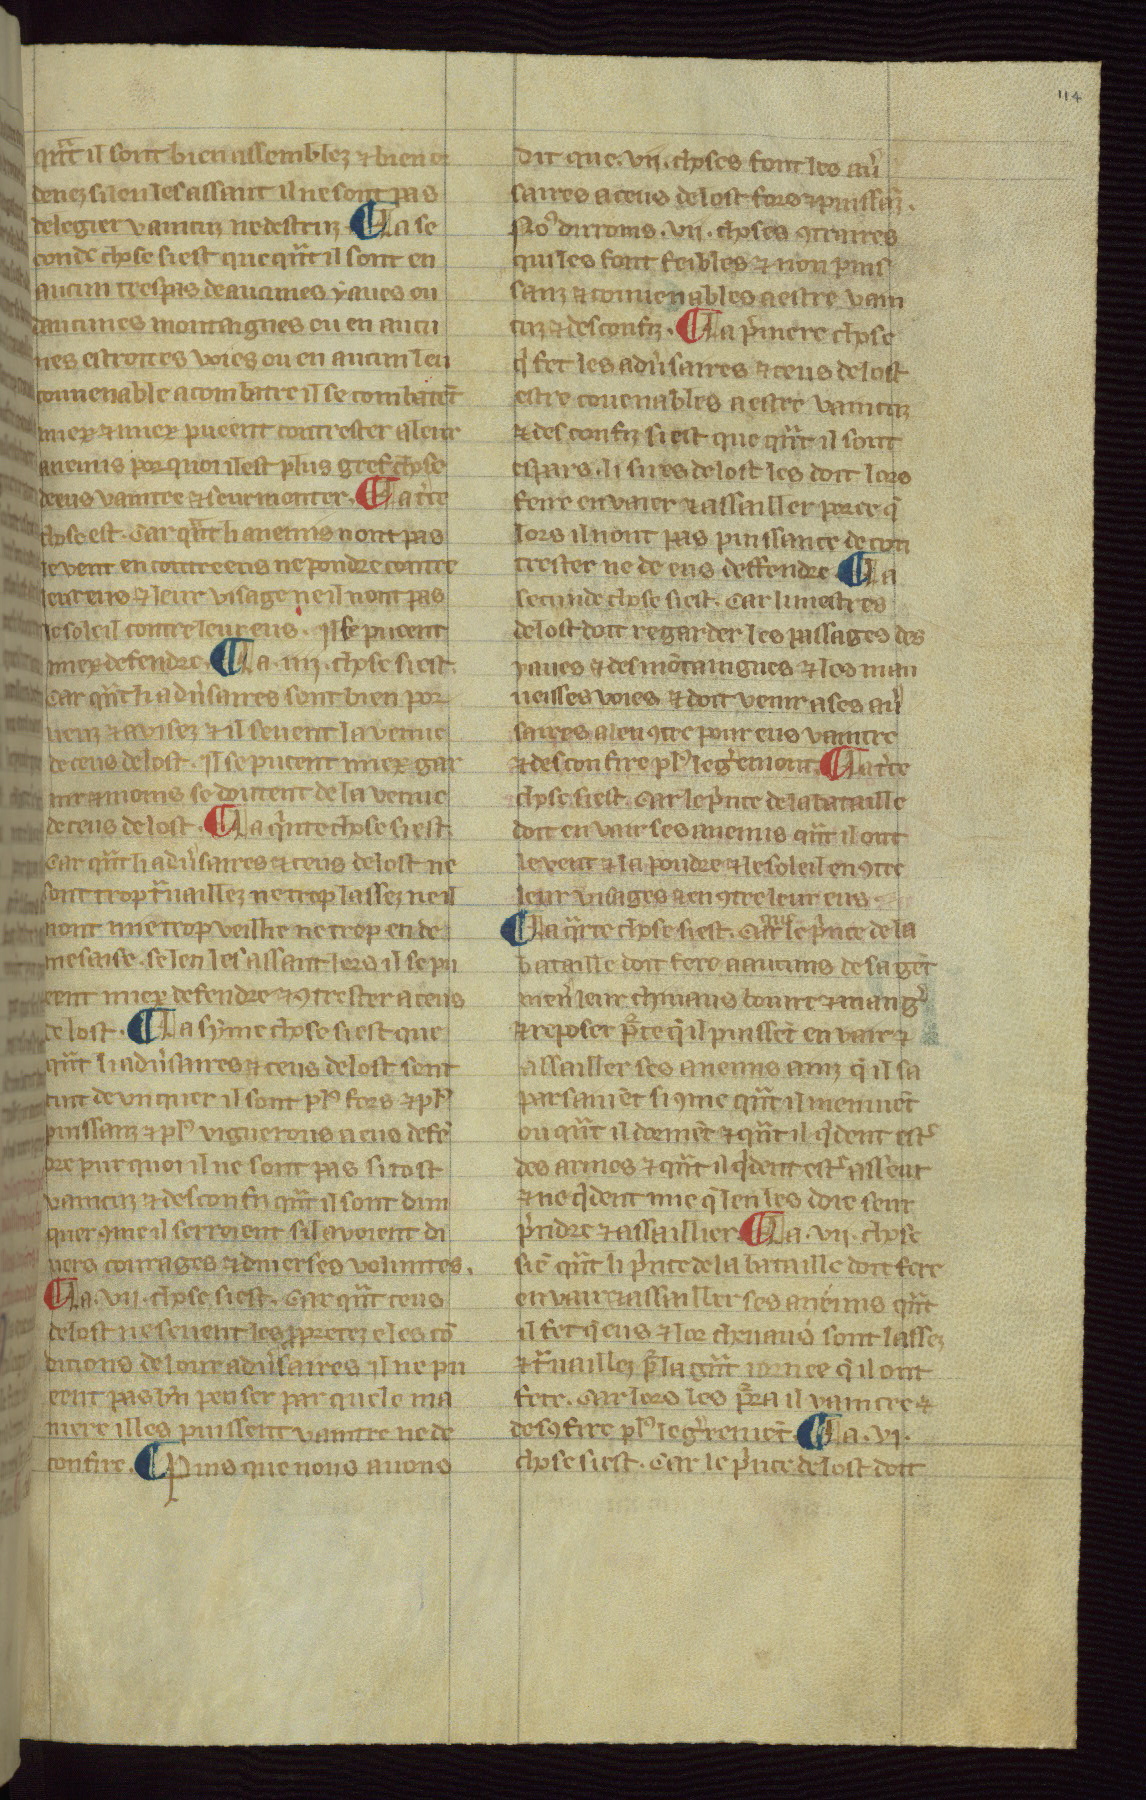 114
qu̅t il sont bien assemblez ⁊ bien or
denez si len les assaut il ne sont pas
de legier vaincuz ne destruiz ¶ La se
conde chose si est que qu̅t il sont en
aucun trespas de aucunes yaues ou
daucunes montaignes ou en aucu
nes estroites voies ou en aucun leu
conuenable a combatre il se combate̅t
miex ⁊ miex pueent contrester a leur
anemis por quoi il est plus gref chose
de eus vaintre ⁊ seurmonter. ¶ La t'ce
chose est. Car qu̅t li anemis nont pas
le vent en contre eus ne poudre contre
leur eus ⁊ leur visage ne il nont pas
le soleil contre leur eus. Il se pueent
miex defendre. ¶ La .iiij. chose si est.
Car qu̅t li adu'saires sont bien por
ueuz ⁊ avisez ⁊ il seuent la venue
de ceus de lost. Il se pueent miex gar
nir ⁊ moins se doutent de la venue
de ceus de lost. ¶ La q'nte chose si est.
Car qu̅t li adu'saires ⁊ ceus de lost ne
sont trop t̃uaillez ne trop lassez ne il
nont mie trop veillie ne trop eu de
mesaise. se len les assaut lors il se pu
eent miex defendre ⁊ ꝯtrester a ceus
de lost. ¶ La sysme chose si est que
qu̅t li adu'saires ⁊ ceus de lost sont
tuit de un quer il sont plꝰ fors ⁊ plꝰ
puissanz ⁊ plꝰ viguerous a eus defe̅
dre pur quoi il ne sont pas si tost
vaincuz ⁊ desconfiz qu̅t il sont dun
quer ꝯme il serroient sil avoient di
uers courages ⁊ diuerses voluntes.
¶ La .vii. chose si est. Car qu̅t ceus
de lost ne seuent les ꝓpretez e les co̅
dicions de lour adu'saires il ne pu
eent pas bn̅ penser par quele ma
niere il les puissent vaintre ne de
confire. ¶ Puis que nous auons
dit que .vii. choses font les au'
saires a ceus de lost fors ⁊ puissa̅z.
Noꝰ dirroms .vii. choses ꝯtraires
qui les font feibles ⁊ non puis
sanz ⁊ conuenables a estre vain
cuz ⁊ desconfiz. ¶ La p'miere chose
q' fet les adu'saires ⁊ ceus de lost
estre couenables a estre vaincuz
⁊ desconfiz si est que qu̅t il sont
espars. li sires de lost les doit lors
feire envaier ⁊ assailler por ce q'
lors il nont pas puissance de con
trester ne de eus deffendre ¶ La
secunde chose si est. Car li mestres
de lost doit regarder les passages des
yaues ⁊ des mo̅taingnes ⁊ les mau
ueisses voies ⁊ doit venir a ses au'
saires a l encꝯtre pour eus vaintre
⁊ desconfire plꝰ leg'ement. ¶ La t'ce
chose si est. Car le p'nce de la bataille
doit en vair ses anemis qu̅t il ont
le vent ⁊ la poudre ⁊ le soleil en ꝯtre
leur visages ⁊ en ꝯtre leur eus
¶ La q̃rte chose si est. Car le p'nce de la
bataille doit fere a aucuns de sa ge̅t
men' leur cheuaus boiure ⁊ mang'
⁊ reposer p̃ ce q' il puisse̅t en vair ⁊
assailler ses anemis ainz q' il sa
parsaiue̅t si ꝯme qu̅t il meniuet
ou qu̅t il dorme̅t ⁊ qu̅t il q'dent est'
des armes ⁊ qu̅t il q'dent est' asseur
⁊ ne q'dent mie q' len les doie seur
p'ndre ⁊ assaillier. ¶ La .vij. chose
si e̅. qu̅t li p'nce de la bataille doit fere
en vair ⁊ assailler ses anemis qu̅t
il fet q' eus ⁊ lor cheuaus sont lassez
⁊ t̃uaillez p̃ la gu̅t iornee q' il ont
fete. Car lors les p̃ra il vaintre ⁊
desꝯfire plꝰ leg'reme̅t. ¶ La .vj.
chose si est. Car le p'nce de lost doit